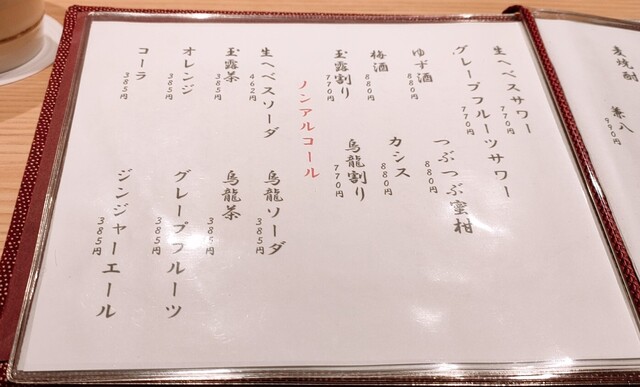 麦焼酎 兼八
990円
生へべスサワー
770円
グレープフルーツサワー
770円
ゆず酒
880円
つぶつぶ蜜柑
880円
梅酒
880円
カシス
880円
玉露割り
770円
烏龍割り
770円
ノンアルコール
生へべスソーダ
462円
烏龍ソーダ
385円
玉露茶
385円
烏龍茶
385円
オレンジ
385円
グレープフルーツ
385円
コーラ
385円
ジンジャーエール
385円